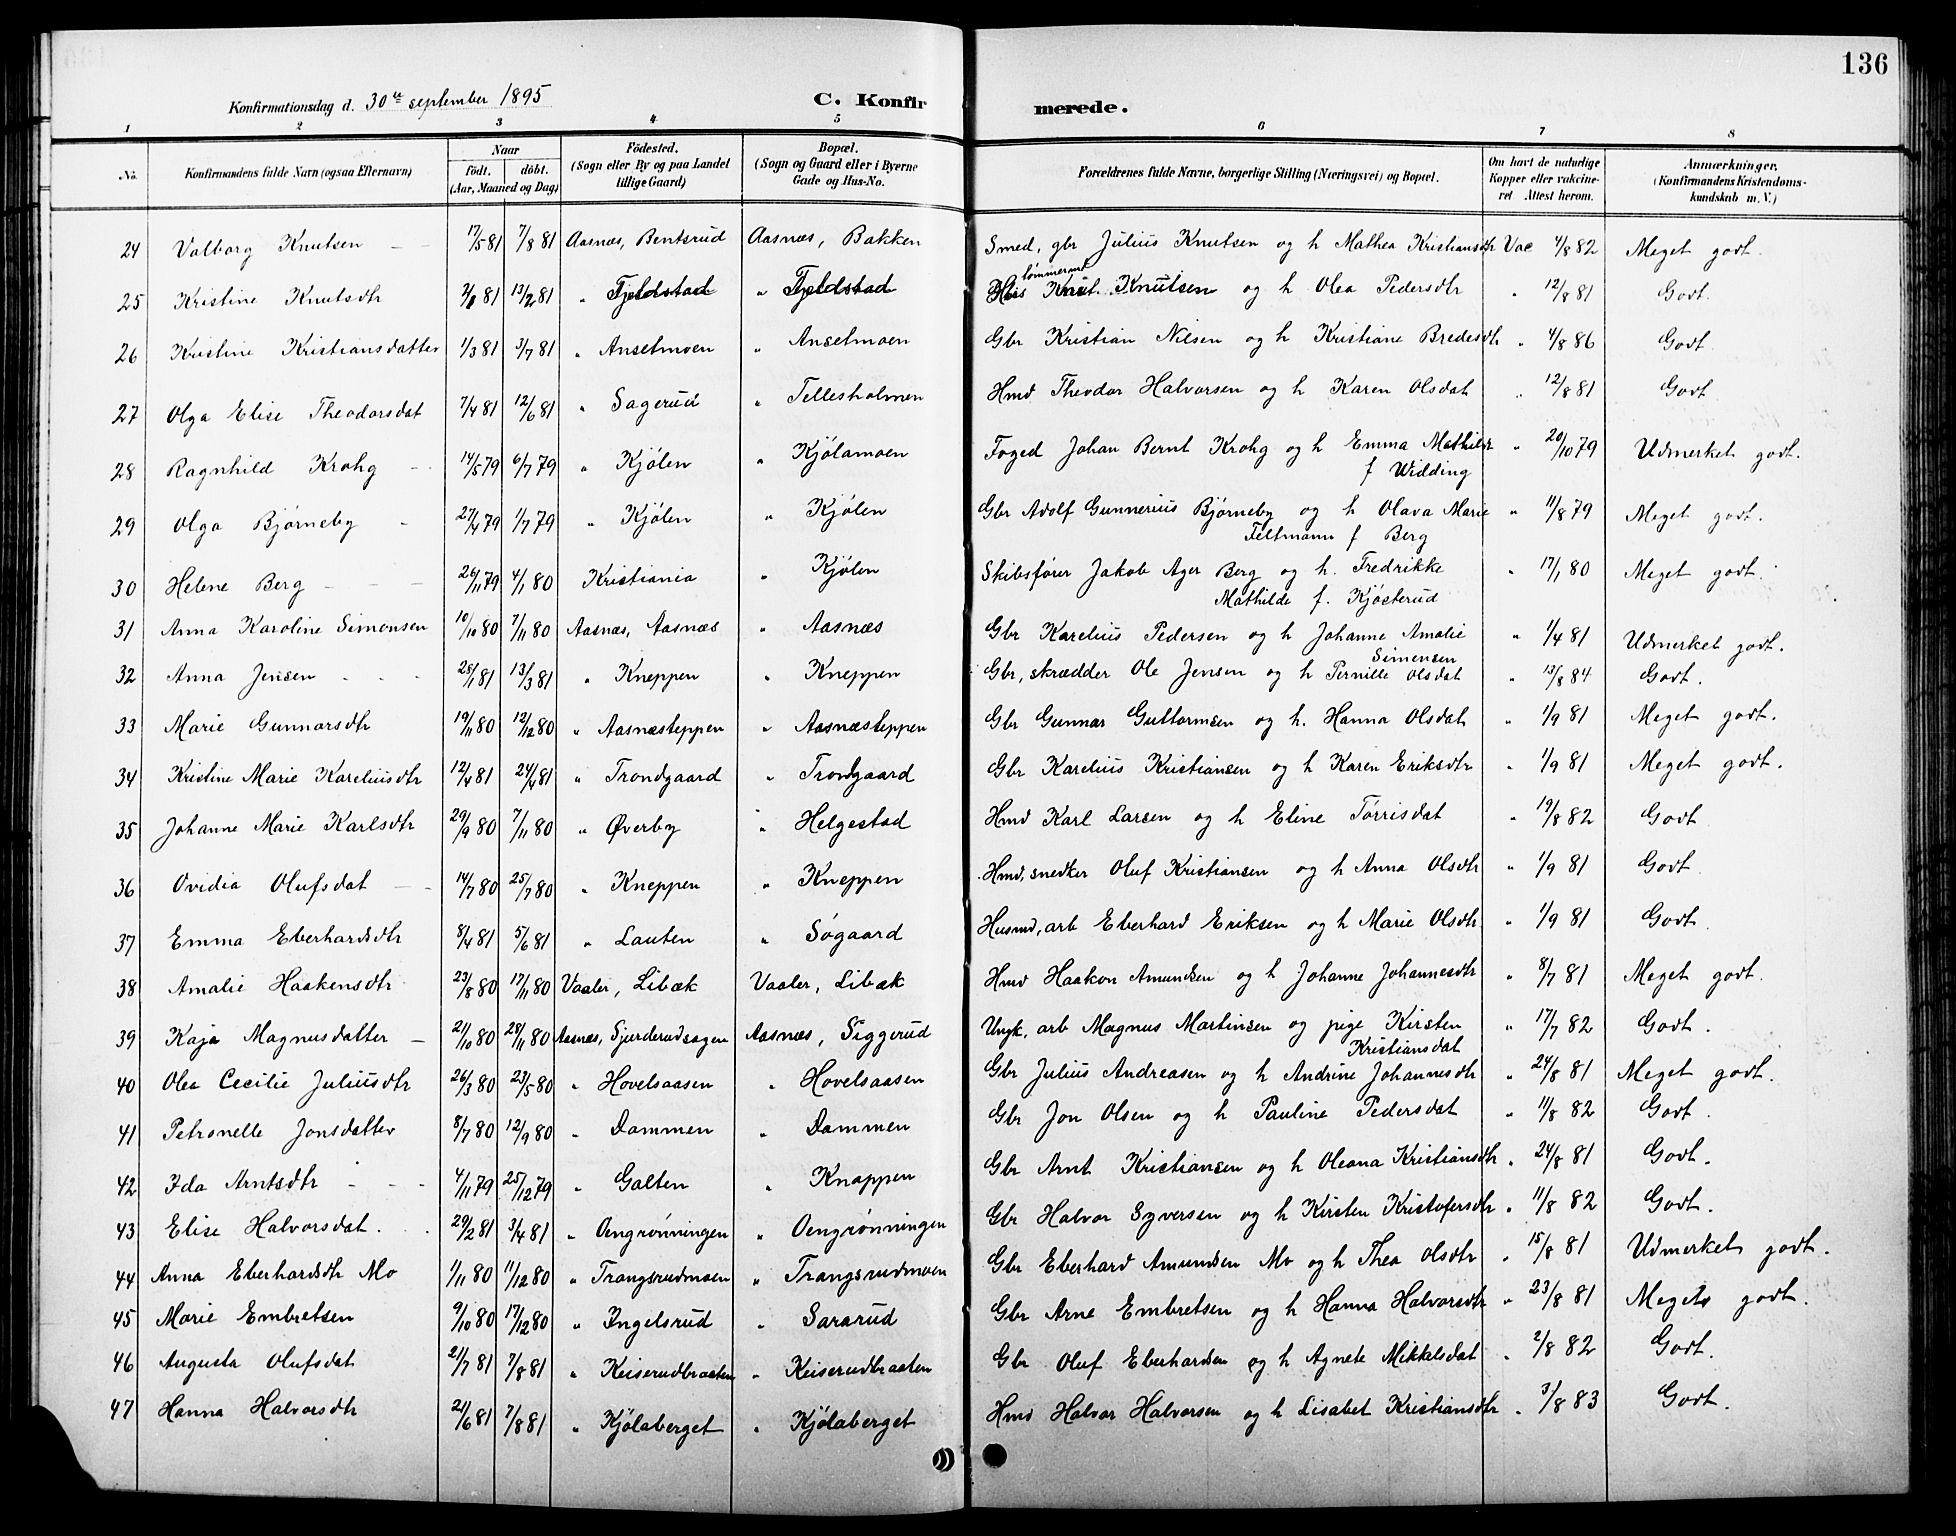 136
Konfirmationsdag d. 30te september 1895
C. Konfirmerede.
1 2 3 4 5 6 7 8
No. Konfirmandens fulde Navn (ogsaa Efternavn) Naar födt. döbt. (Aar, Maaned og Dag) Födested. (Sogn eller By og paa Landet tillige Gaard) Bopæl. (Sogn og Gaard eller i Byerne Gade og Hus-No. Forældrenes fulde Navne, borgerlige Stilling (Næringsvei) og Bopæl. Om havt de naturlige Kopper eller vakcineret Attest herom. Anmærkninger. (Konfirmandens Kristendomskundskab m. V.)
24 Valborg Knutsen 17/5 81 7/8 81 Aasnæs, Bentsrud Aasnæs, Bakken Smed, gbr Julius Knutsen og h Mathea Kristiansdtr Vac 4/8 82 Meget godt.
25 Kristine Knutsdtr 81 13/2 81 " Fjeldstad " Fjeldstad tømmermd Knut Knutsen og h Olea Pedersdtr " 12/8 81 Godt.
26 Kristine Kristiansdatter 1/3 81 3/7 81 " Anselmoen " Anselmoen Gbr Kristian Nilsen og h Kristiane Bredesdtr " 4/8 86 Godt.
27 Olga Elise Theodorsdat 7/4 81 12/6 81 " Sagerud " Tellesholmen Hmd Theodor Halvorsen og h Karen Olsdat " 12/8 81 Godt.
28 Ragnhild Krohg 14/5 79 6/7 79 " Kjölen " Kjölamoen Foged Johan Bernt Krohg og h Emma Mathilde f Widding " 20/10 79 Udmerket godt.
29 Olga Bjørneby 27/4 79 1/7 79 " Kjölen " Kjölen Gbr Adolf Gunnerius Bjørneby og h Olava Marie Feltmann f Berg " 11/8 79 Meget godt.
30 Helene Berg 26/11 79 4/1 80 Kristiania " Kjölen Skibsfører Jakob Ager Berg og h. Fredrikke Mathilde f. Kjösterud " 17/1 80 Meget godt.
31 Anna Karoline Simensen 10/10 80 7/11 80 Aasnæs, Aasnæs " Aasnæs Gbr Karelius Pedersen og h Johanne Amalie Simensen " 1/4 81 Udmerket godt.
32 Anna Jensen 28/1 81 13/3 81 " Kneppen " Kneppen Gbr, skrædder Ole Jensen og h Pernille Olsdat " 13/8 84 Godt.
33 Marie Gunnarsdtr 19/11 80 12/12 80 " Aasnæsteppen " Aasnæsteppen Gbr Gunnar Guttormsen og h. Hanna Olsdat " 1/9 81 Meget godt.
34 Kristine Marie Kareliusdtr 12/4 81 24/4 81 " Trondgaard " Trondgaard Gbr Karelius Kristiansen og h Karen Eriksdtr " 1/9 81 Meget godt.
35 Johanne Marie Karlsdtr 29/9 80 7/11 80 " Øverby " Helgestad Hmd Karl Larsen og h Eline Tørrisdat " 19/8 82 Godt
36 Ovidia Olufsdat 14/7 80 25/7 80 " Kneppen " Kneppen Hmd, snedker Oluf Kristiansen og h Anna Olsdtr " 1/9 81 Godt.
37 Emma Eberhardsdtr 8/4 81 5/6 81 " Lauten " Søgaard Husmd, arb Eberhard Eriksen og h Marie Olsdtr " 1/9 81 Godt.
38 Amalie Haakensdtr 23/8 80 17/11 80 Vaaler, Libæk Vaaler, Libæk Hmd Haakon Amundsen og h Johanne Johannesdtr " 8/7 81 Meget godt.
39 Kaja Magnusdatter 21/10 80 28/11 80 Aasnæs, Sjurderudsagen Aasnæs, Siggerud Ungk, arb Magnus Martinsen og pige Kirsten Kristiansdat " 17/7 82 Godt.
40 Olea Cecilie Juliusdtr 26/3 80 23/5 80 " Hovelsaasen " Hovelsaasen Gbr Julius Andreasen og h Andrine Johannesdtr " 24/8 81 Meget godt.
41 Petronelle Jonsdatter 8/7 80 12/9 80 " Dammen " Dammen Gbr Jon Olsen og h Pauline Pedersdat " 11/8 82 Godt.
42 Ida Arntsdtr 4/11 79 25/12 79 " Galten " Knappen Gbr Arnt Kristiansen og h Oleana Kristiansdtr " 24/8 81 Godt.
43 Elise Halvorsdat. 29/2 81 3/4 81 " Oengrønningen " Oengrønningen Gbr Halvor Syversen og h Kirsten Kristofersdtr " 11/8 82 Godt.
44 Anna Eberhardsdtr Mo 1/11 80 11/12 80 " Trangsrudmoen " Trangsrudmoen Gbr Eberhard Amundsen Mo og h Thea Olsdtr " 15/8 81 Udmerket godt.
45 Marie Embretsen 9/10 80 17/12 80 " Ingelsrud " Sararud Gbr Arne Embretsen og h Hanna Halvorsdtr " 23/8 81 Megets godt.
46 Augusta Olufsdat 21/7 81 7/8 81 " Keiserudbraaten " Keiserudbraaten Gbr Oluf Eberhardsen og h Agnete Mikkelsdat " 2/8 82 Godt.
47 Hanna Halvorsdtr 21/6 81 7/8 81 " Kjölaberget " Kjölaberget Hmd Halvor Halvorsen og h Lisabet Kristiansdtr " 3/8 83 Godt.